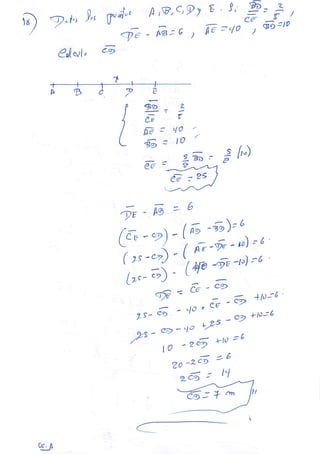 18) Dados los puntos A, B, C, D y E. Si BD/CE = 2/5,
DE - AB = 6, AE = 40, BD = 10
Calcule CD
x
A B C D E
BD/CE = 2/5
AE = 40
BD = 10
CE = 5/2 BD = 5/2 (10)
CE = 25
DE - AB = 6
(CE - CD) - (AD - BD) = 6
(25 - CD) - (AE - DE - 10) = 6
(25 - CD) - (40 - DE - 10) = 6
DE = CE - CD
25 - CD - 40 + CE - CD + 10 = 6
25 - CD - 40 + 25 - CD + 10 = 6
10 - 2CD + 10 = 6
20 - 2CD = 6
2CD = 14
CD = 7 m